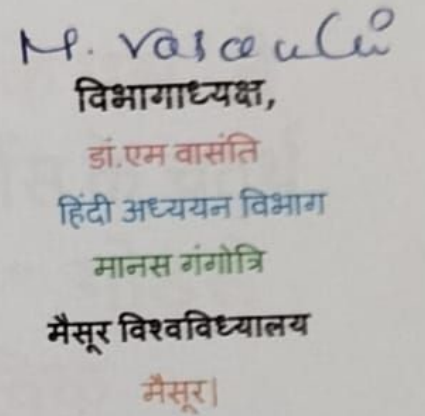 M. Vasanthi
विभागाध्यक्ष,
डां.एम वासंति
हिंदी अध्ययन विभाग
मानस गंगोत्रि
मैसूर विश्वविध्यालय
मैसूर|